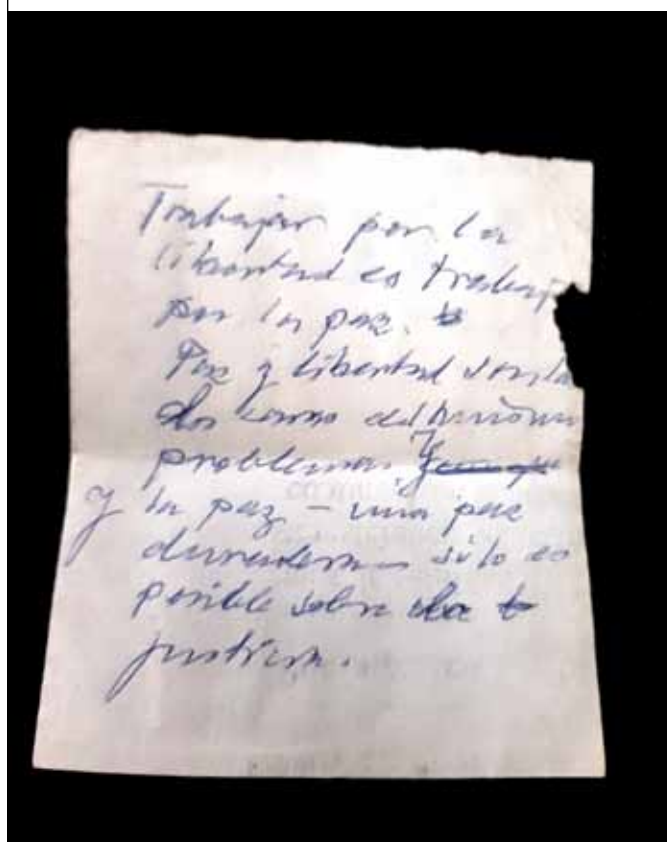 Trabajar por la
libertad es trabaj
por la paz.
Paz y libertad son la
dos caras del mismo
problema. y
y la paz – una paz
duradera – sólo es
posible sobre la
justicia.